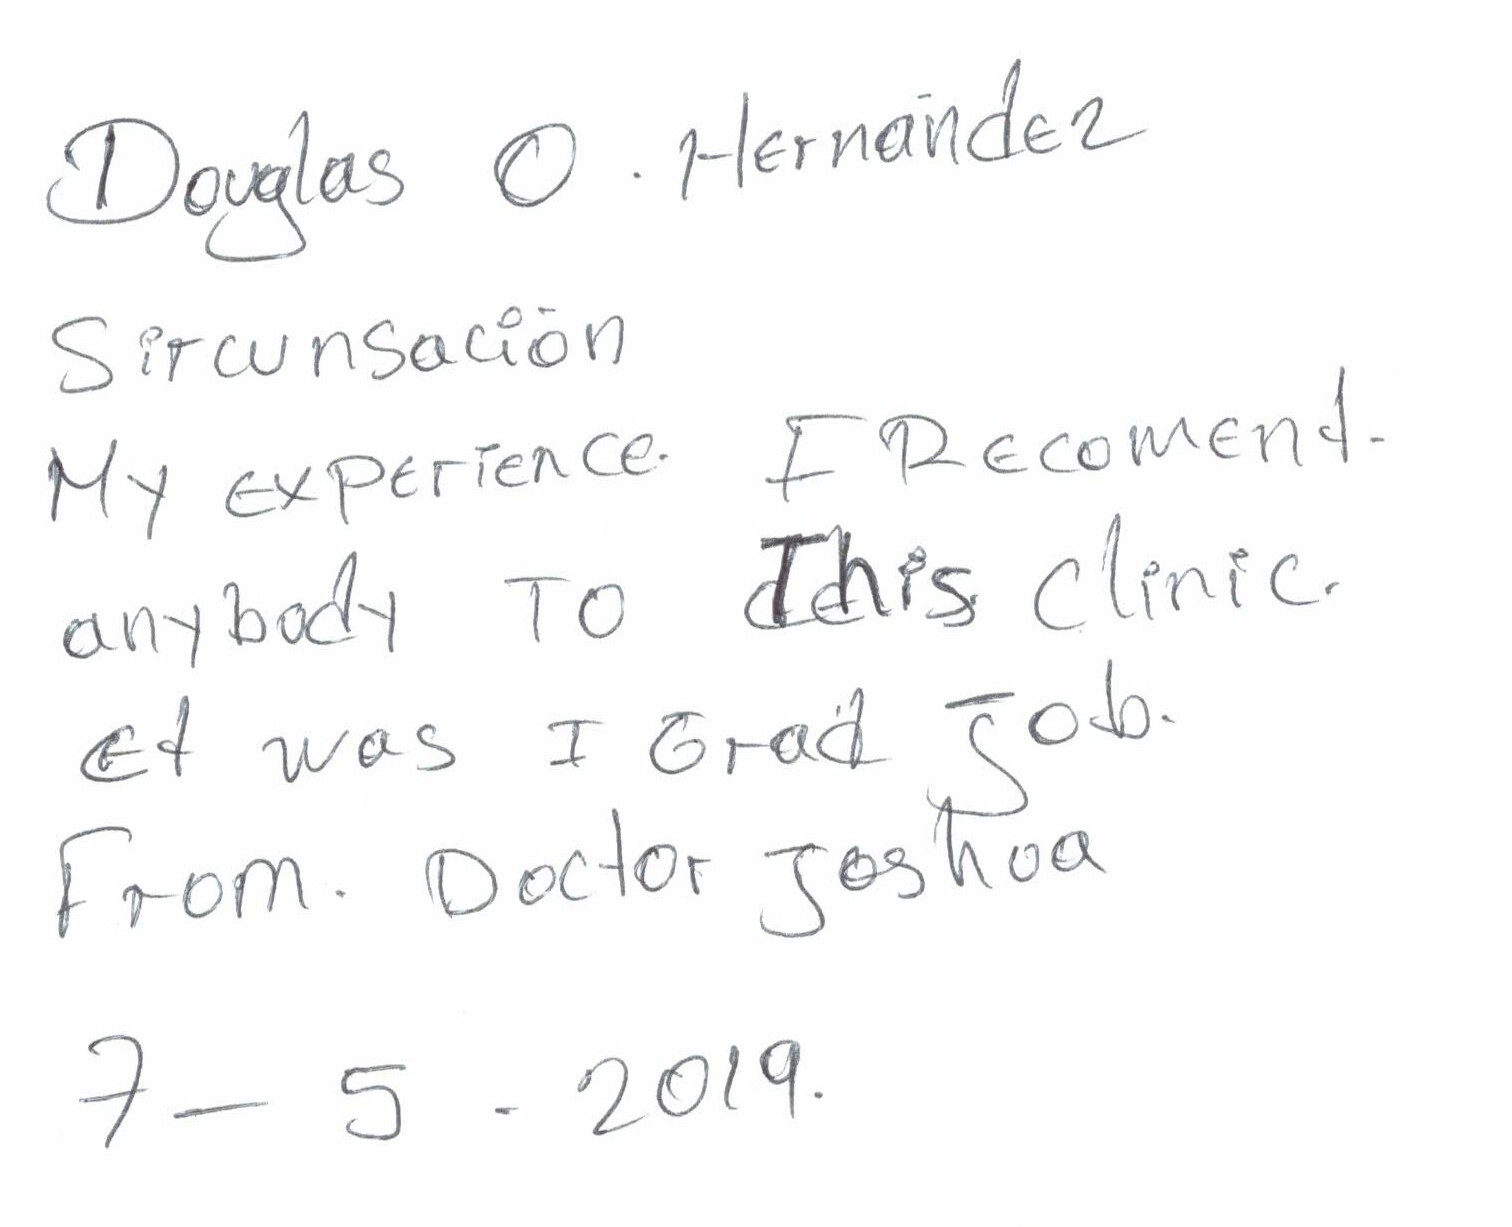 Douglas O. Hernández
Sircunsación
My experience. I Recomend.
anybody To This clinic.
et was I Grad Job.
From. Doctor Joshua
7 - 5 - 2019.